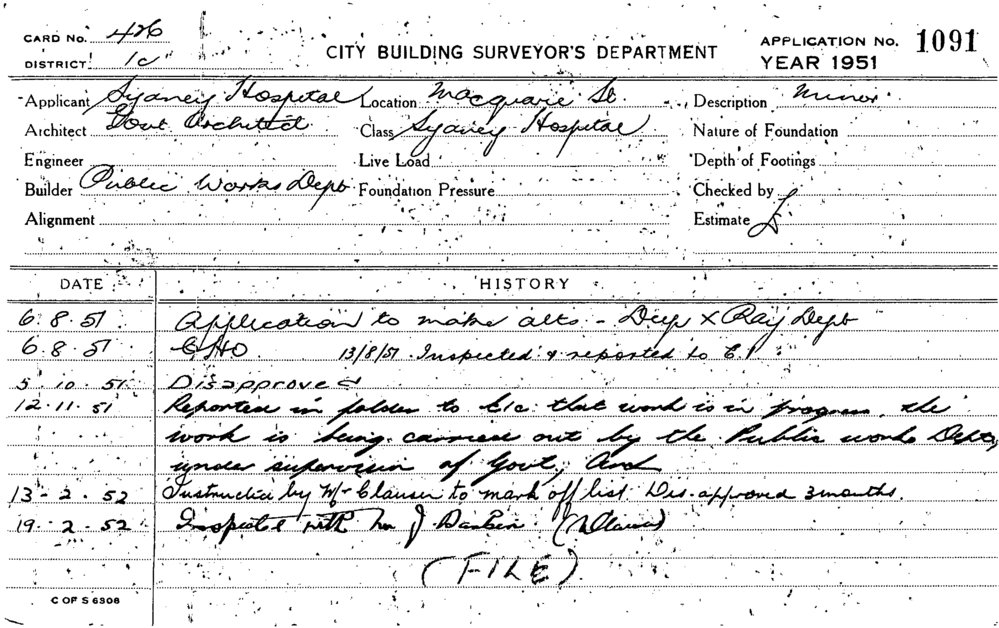 CARD No. 426
DISTRICT 1c
CITY BUILDING SURVEYOR'S DEPARTMENT
APPLICATION No. 1091
YEAR 1951
Applicant Sydney Hospital Location Macquarie St. Description Minor
Architect Govt Architect Class Sydney Hospital Nature of Foundation
Engineer Live Load Depth of Footings
Builder Public Works Dept Foundation Pressure Checked by
Alignment Estimate £
DATE HISTORY
6.8.51 Application to make alts - Deep X Ray Dept
6.8.51 13/8/51. Inspected & reported to
5.10.51 Disapproved
12.11.51 Reported in folder to that work is in progress. the
work is being carried out by the Public works Dept,
under supervision of Govt, Arch
13-2.52 Instructed by Mr Clauser to mark off list Dis.approved 3 months.
19.2.52 Inspected with
(FILE)
C OF S 6308